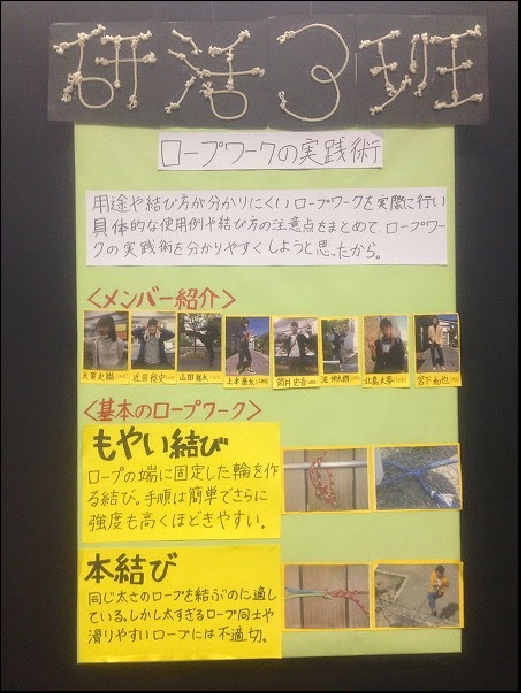 研活3班
ロープワークの実践術
用途や結び方が分かりにくいロープワークを実際に行い
具体的な使用例や結び方の注意点をまとめて、ロープワー
クの実践術を分かりやすくしようと思ったから。
<メンバー紹介>
<基本のロープワーク>
もやい結び
ロープの端に固定した輪を作
る結び。手順は簡単でさらに
強度も高くほどきやすい。
本結び
同じ太さのロープを結ぶのに適し
ている。しかし太すぎるロープ同士や
滑りやすいロープには不適切。